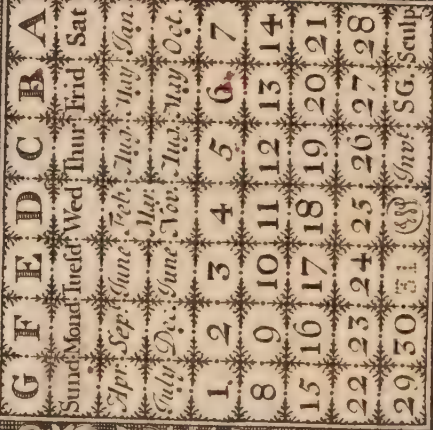 G F E D C B A
Sund Mond Tuesd Wed Thur Frid Sat
Apr. Sep. June Feb Aug. May Jan.
Mar.
July Dec. June Nov. Aug. May Oct.
1 2 3 4 5 6 7
8 9 10 11 12 13 14
15 16 17 18 19 20 21
22 23 24 25 26 27 28
29 30 31 Invt. SG. Sculp